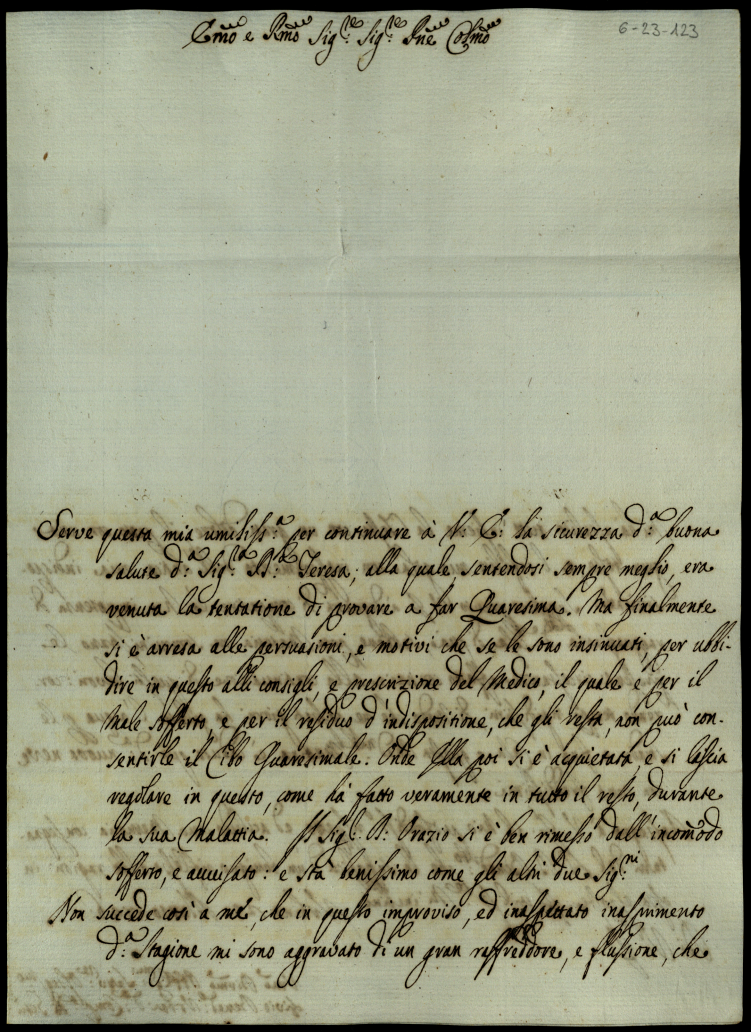 Emo e Rmo Sig.re Sig.re Pne Colmo
6-23-123
Serve questa mia umiliss.a per continuare à V: E: la sicurezza d.a buona
salute d.a Sig.ra Teresa; alla quale, sentendosi sempre meglio, era
venuta la tentatione di provare a far Quaresima. Ma finalmente
si è arresa alle persuasioni, e motivi che se le sono insinuati, per ubbi-
dire in questo alli consigli, e prescrizione del Medico, il quale è per il
Male sofferto, e per il residuo d'indispositione, che gli resta, non può con-
sentirle il Cibo Quaresimale. Onde Ella poi si è acquietata, e si lascia
regolare in questo, come hà fatto veramente in tutto il resto, durante
la sua Malattia. Il Sig.r D: Orazio si è ben rimesso dall'incomodo
sofferto, e avvisato: e stà benissimo come gli altri due Sig.ni
Non succede così a mè, che in questo improviso, ed inaspettato inasprimento
d.a Stagione mi sono aggravato di un gran raffreddore, e flussione, che